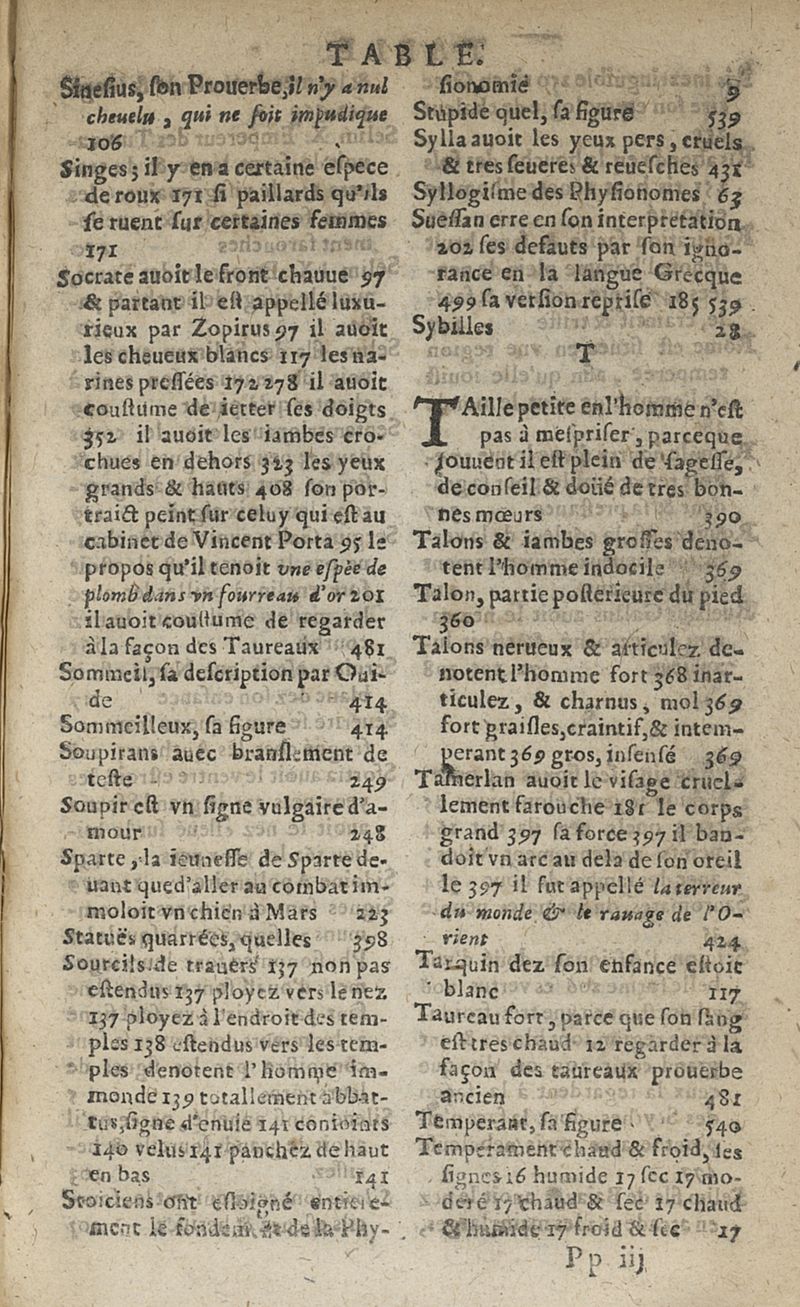 TABLE.
Sinesius, son Prouerbe, il n'y a nul
cheuelu, qui ne soit impudique
106
Singes; il y en a certaine espece
de roux 171 si paillards qu'ils
se ruent sur certaines femmes
171
Socrate auoit le front chauue 97
& partant il est appellé luxu-
rieux par Zopirus 97 il auoit
les cheueux blancs 117 les na-
rines pressées 172 278 il auoit
coustume de ietter ses doigts
352 il auoit les iambes cro-
chues en dehors 323 les yeux
grands & hauts 408 son por-
traict peint sur celuy qui est au
cabinet de Vincent Porta 95 le
propos qu'il tenoit vne espèe de
plomb dans vn fourreau d'or 201
il auoit coustume de regarder
à la façon des Taureaux 481
Sommeil, sa description par Oui-
de 414
Sommeilleux, sa figure 414
Soupirans auec branslement de
teste 249
Soupir est vn signe vulgaire d'a-
mour 248
Sparte, la ieunesse de Sparte de-
uant que d'aller au combat im-
moloit vn chien à Mars 223
Statuës quarrées, quelles 398
Sourcils de trauers 137 non pas
estendus 137 ployez vers le nez
137 ployez à l'endroit des tem-
ples 138 estendus vers les tem-
ples denotent l'homme im-
monde 139 totallement abbat-
tus, signe d'enuie 141 conioints
140 velus 141 panchez de haut
en bas 141
Stoiciens ont esloigné entiere-
ment le fondement de la Phy-
sionomie 9
Stupide quel, sa figure 539
Sylla auoit les yeux pers, cruels
& tres seueres & reuesches 431
Syllogisme des Physionomes 63
Suessan erre en son interpretation
202 ses defauts par son igno-
rance en la langue Grecque
499 sa version reprise 185 539
Sybilles 28
T
TAille petite en l'homme n'est
pas à mespriser, parceque
souuent il est plein de sagesse,
de conseil & doüé de tres bon-
nes mœurs 390
Talons & iambes grosses deno-
tent l'homme indocile 369
Talon, partie posterieure du pied
360
Talons nerueux & articulez de-
notent l'homme fort 368 inar-
ticulez, & charnus, mol 369
fort graisles, craintif, & intem-
perant 369 gros, insensé 369
Tamerlan auoit le visage cruel-
lement farouche 181 le corps
grand 397 sa force 397 il ban-
doit vn arc au dela de son oreil
le 397 il fut appellé la terreur
du monde & le rauage de l'O-
rient 424
Tarquin dez son enfance estoit
blanc 117
Taureau fort, parce que son sang
est tres chaud 12 regarder à la
façon des taureaux prouerbe
ancien 481
Temperant, sa figure 540
Temperament chaud & froid, ses
signes 16 humide 17 sec 17 mo-
deré 17 chaud & sec 17 chaud
& humide 17 froid & sec 17
Pp iij